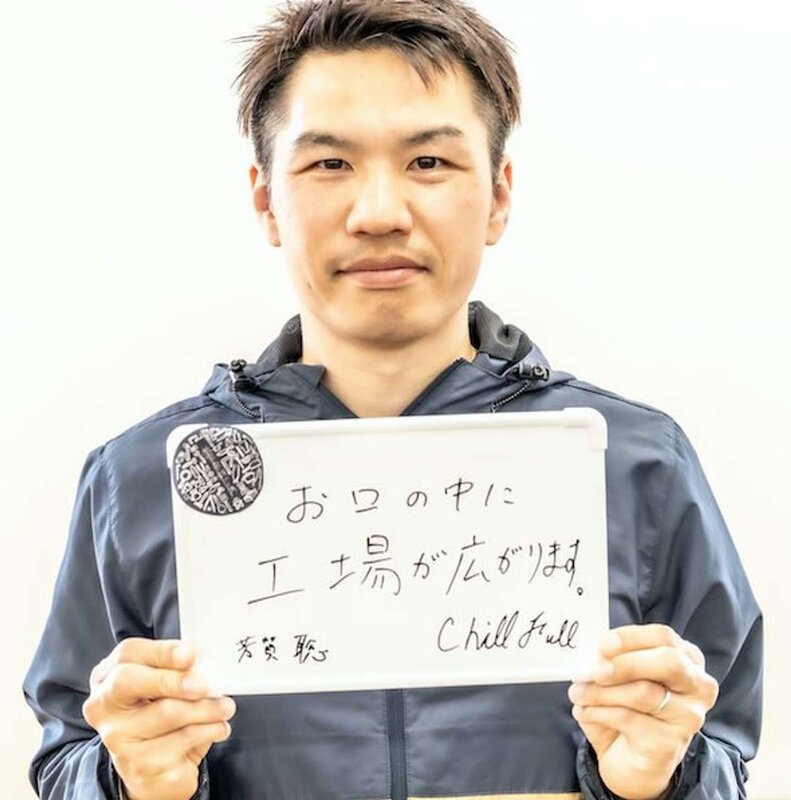 お口の中に
工場が広がります。
芳賀 聡 Chill full